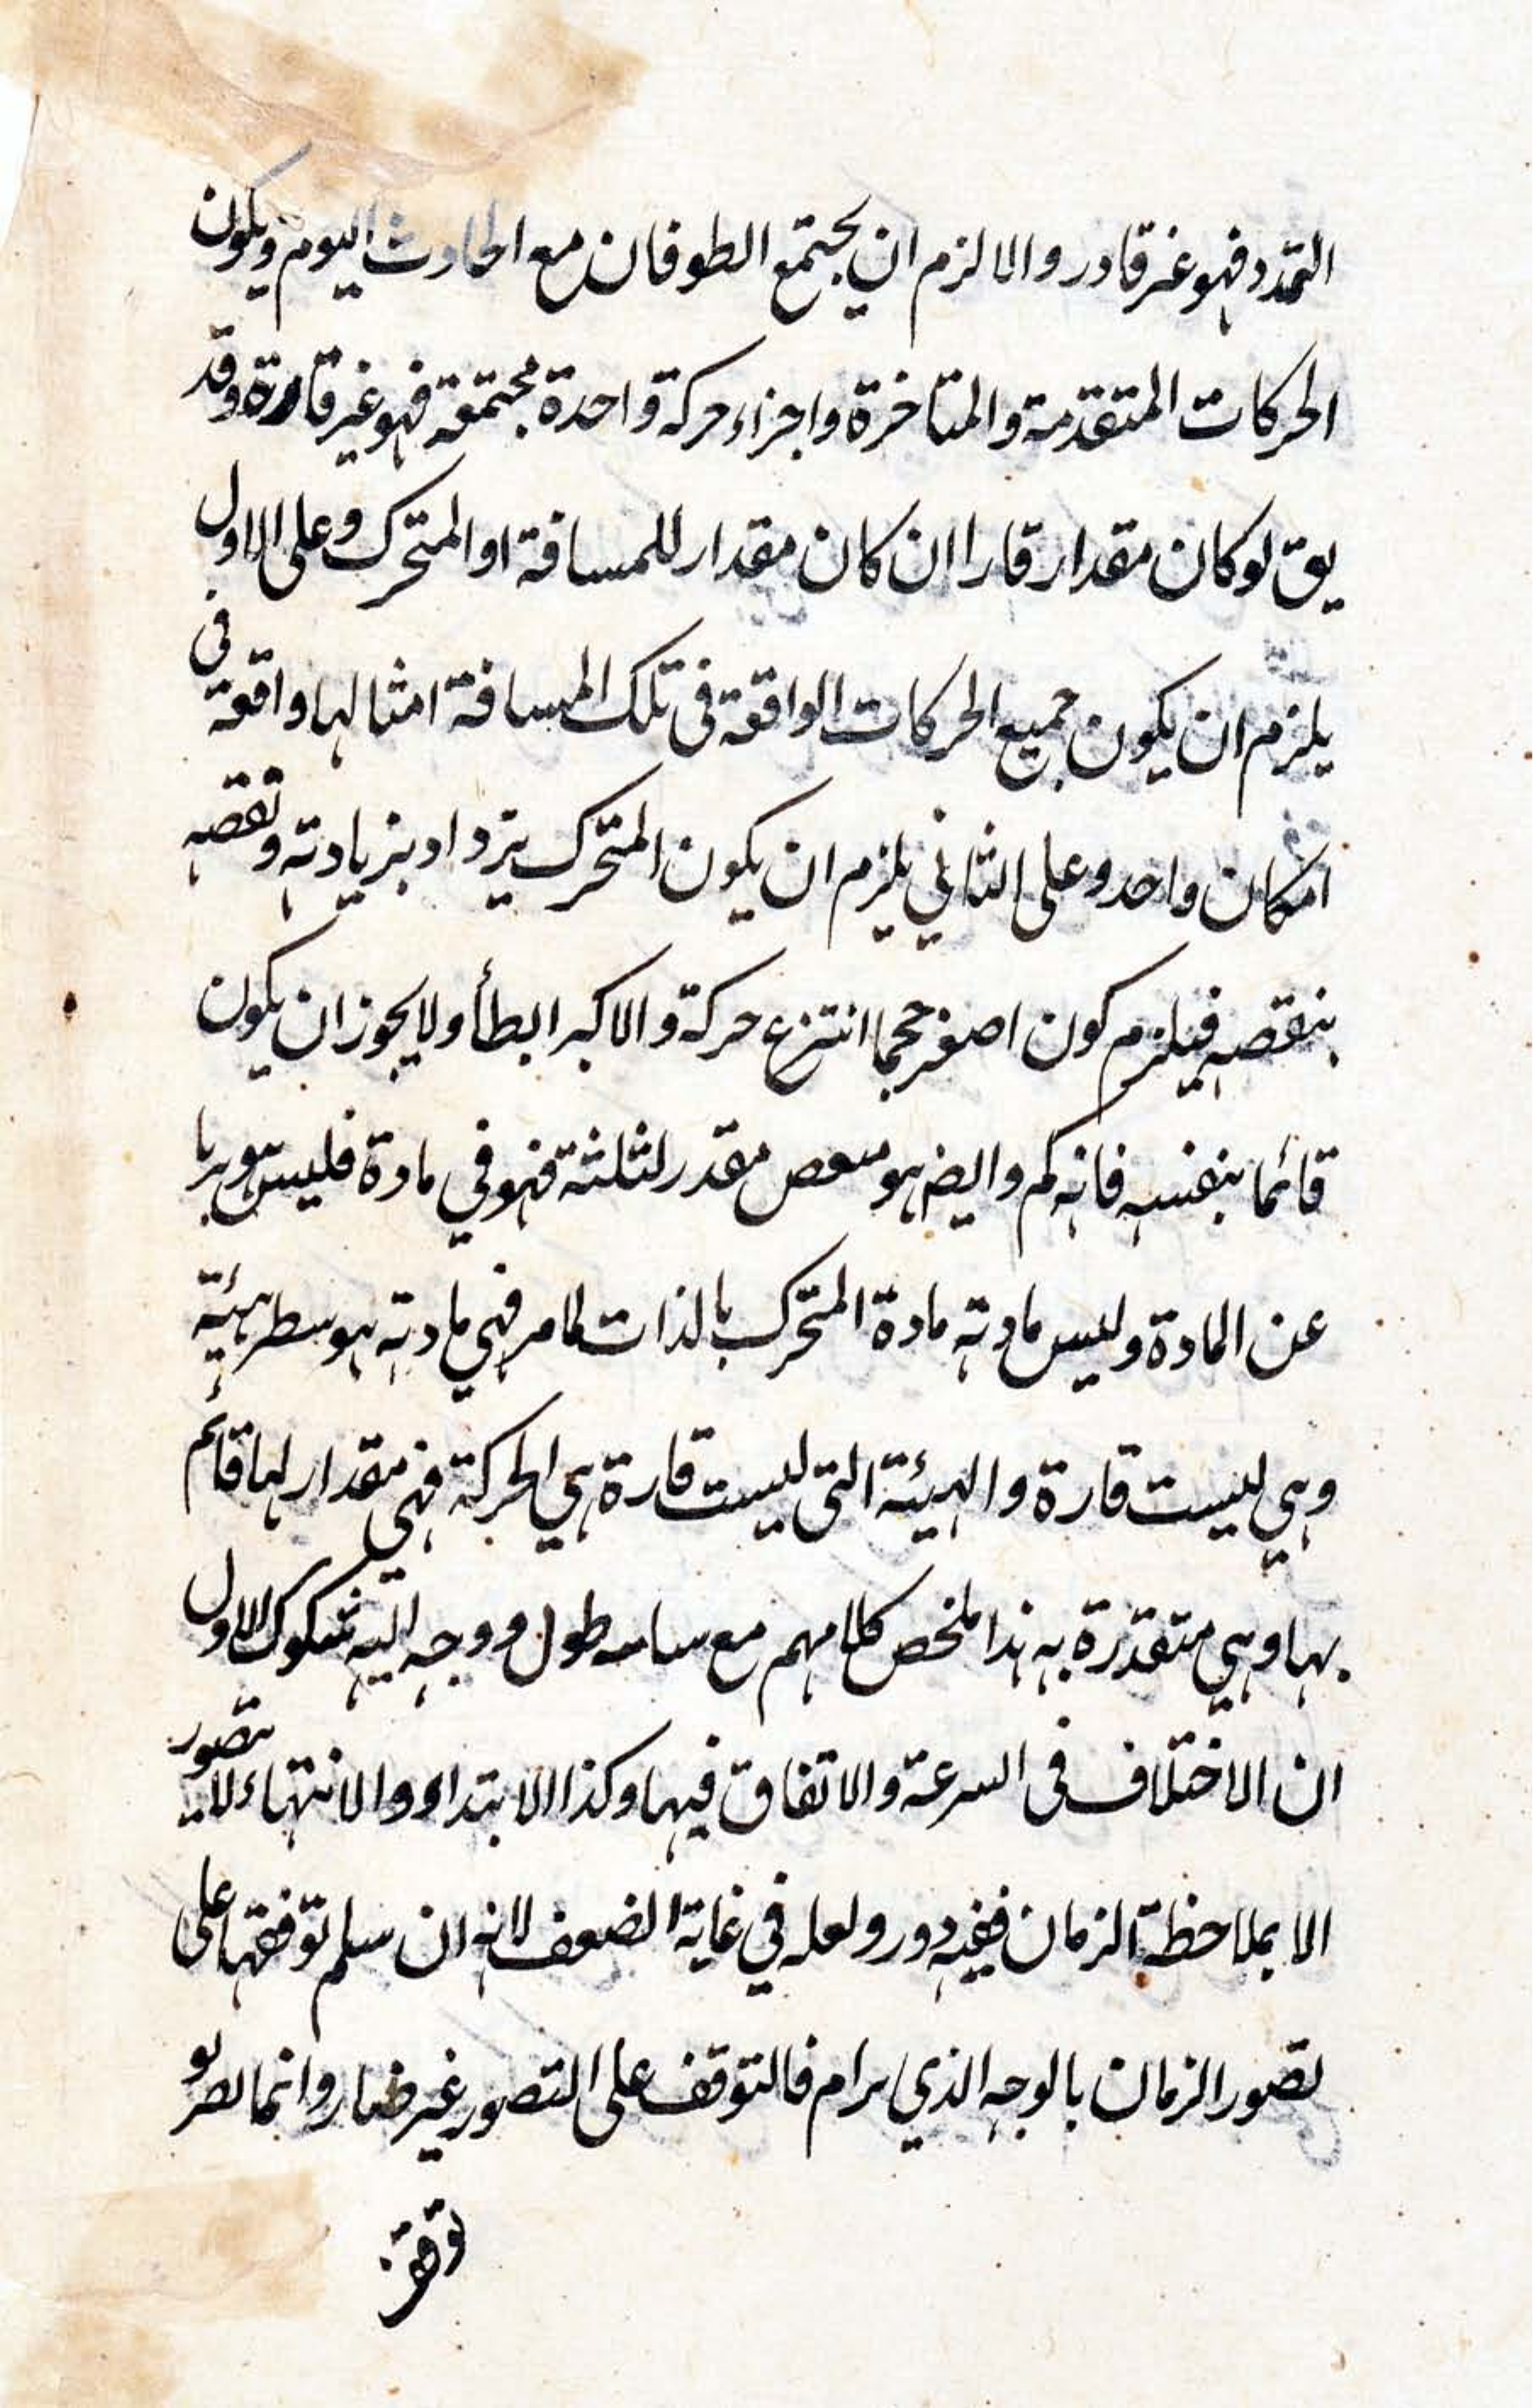 التمدد فهو غير قادر والا لزم ان يجتمع الطوفان مع الحادث اليوم ويكون
الحركات المتقدمة والمتاخرة واجزاء حركة واحدة مجتمعة فهو غير قارة وقد
يق لو كان مقدار قارا ان كان مقدار للمسافة او المتحرك وعلى الاول
يلزم ان يكون جميع الحركات الواقعة فى تلك المسافة امثالها واقعة فى
امكان واحد وعلى الثاني يلزم ان يكون المتحرك يزداد بزيادته ونقصه
بنقصه فيلزم كون اصغر حجما حركة والاكبر ابطأ ولا يجوز ان يكون
قائما بنفسه فانه كم وايض هو مقدر لثلثة فهو في مادة فليس
عن المادة وليس مادته مادة المتحرك بالذات لما مر فهي مادته هيئة
وهي ليست قارة والهيئة التى ليست قارة هي الحركة فهي مقدار لها قائم
بها وهي متقدرة به هذا ملخص كلامهم مع طول ووجه اليه شكوك الاول
ان الاختلاف فى السرعة والاتفاق فيها وكذا الابتداء والانتهاء لا يتصور
الا بملاحظة الزمان ففيه دور ولعله في غاية الضعف لانه ان سلم توقفها على
تصور الزمان بالوجه الذي يرام فالتوقف على التصور غير ضار وانما يضر لو
توقف